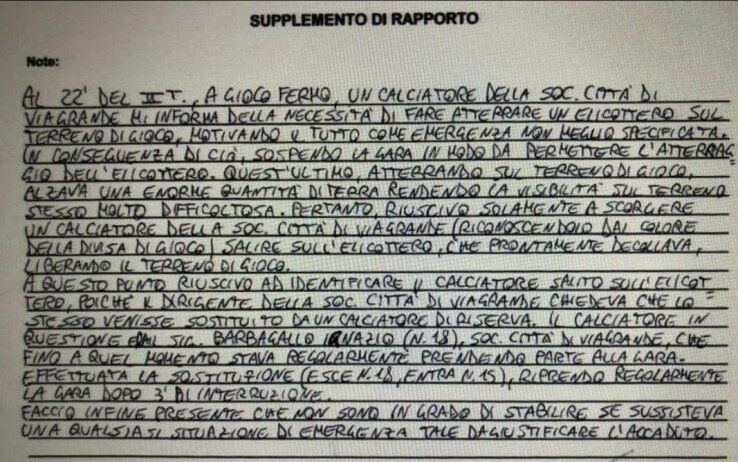 SUPPLEMENTO DI RAPPORTO
Note:
AL 22' DEL II T., A GIOCO FERMO, UN CALCIATORE DELLA SOC. CITTÀ DI
VIAGRANDE MI INFORMA DELLA NECESSITÀ DI FARE ATTERRARE UN ELICOTTERO SUL
TERRENO DI GIOCO, MOTIVANDO IL TUTTO COME EMERGENZA NON MEGLIO SPECIFICATA.
IN CONSEGUENZA DI CIÒ, SOSPENDO LA GARA IN MODO DA PERMETTERE L'ATTERRAG=
GIO DELL'ELICOTTERO. QUEST'ULTIMO, ATTERRANDO SUL TERRENO DI GIOCO,
ALZAVA UNA ENORME QUANTITÀ DI TERRA RENDENDO LA VISIBILITÀ SUL TERRENO
STESSO MOLTO DIFFICOLTOSA. PERTANTO, RIUSCIVO SOLAMENTE A SCORGERE
UN CALCIATORE DELLA SOC. CITTÀ DI VIAGRANDE (RICONOSCENDOLO DAL COLORE
DELLA DIVISA DI GIOCO) SALIRE SULL'ELICOTTERO, CHE PRONTAMENTE DECOLLAVA,
LIBERANDO IL TERRENO DI GIOCO.
A QUESTO PUNTO RIUSCIVO AD IDENTIFICARE IL CALCIATORE SALITO SULL'ELICOT=
TERO, POICHÈ IL DIRIGENTE DELLA SOC. CITTÀ DI VIAGRANDE CHIEDEVA CHE LO
STESSO VENISSE SOSTITUITO DA UN CALCIATORE DI RISERVA. IL CALCIATORE IN
QUESTIONE È IL SIG. BARBAGALLO IGNAZIO (N.18), SOC. CITTÀ DI VIAGRANDE, CHE
FINO A QUEL MOMENTO STAVA REGOLARMENTE PRENDENDO PARTE ALLA GARA.
EFFETTUATA LA SOSTITUZIONE (ESCE N.18, ENTRA N.15), RIPRENDO REGOLARMENTE
LA GARA DOPO 3' DI INTERRUZIONE.
FACCIO INFINE PRESENTE CHE NON SONO IN GRADO DI STABILIRE SE SUSSISTEVA
UNA QUALSIASI SITUAZIONE DI EMERGENZA TALE DA GIUSTIFICARE L'ACCADUTO.